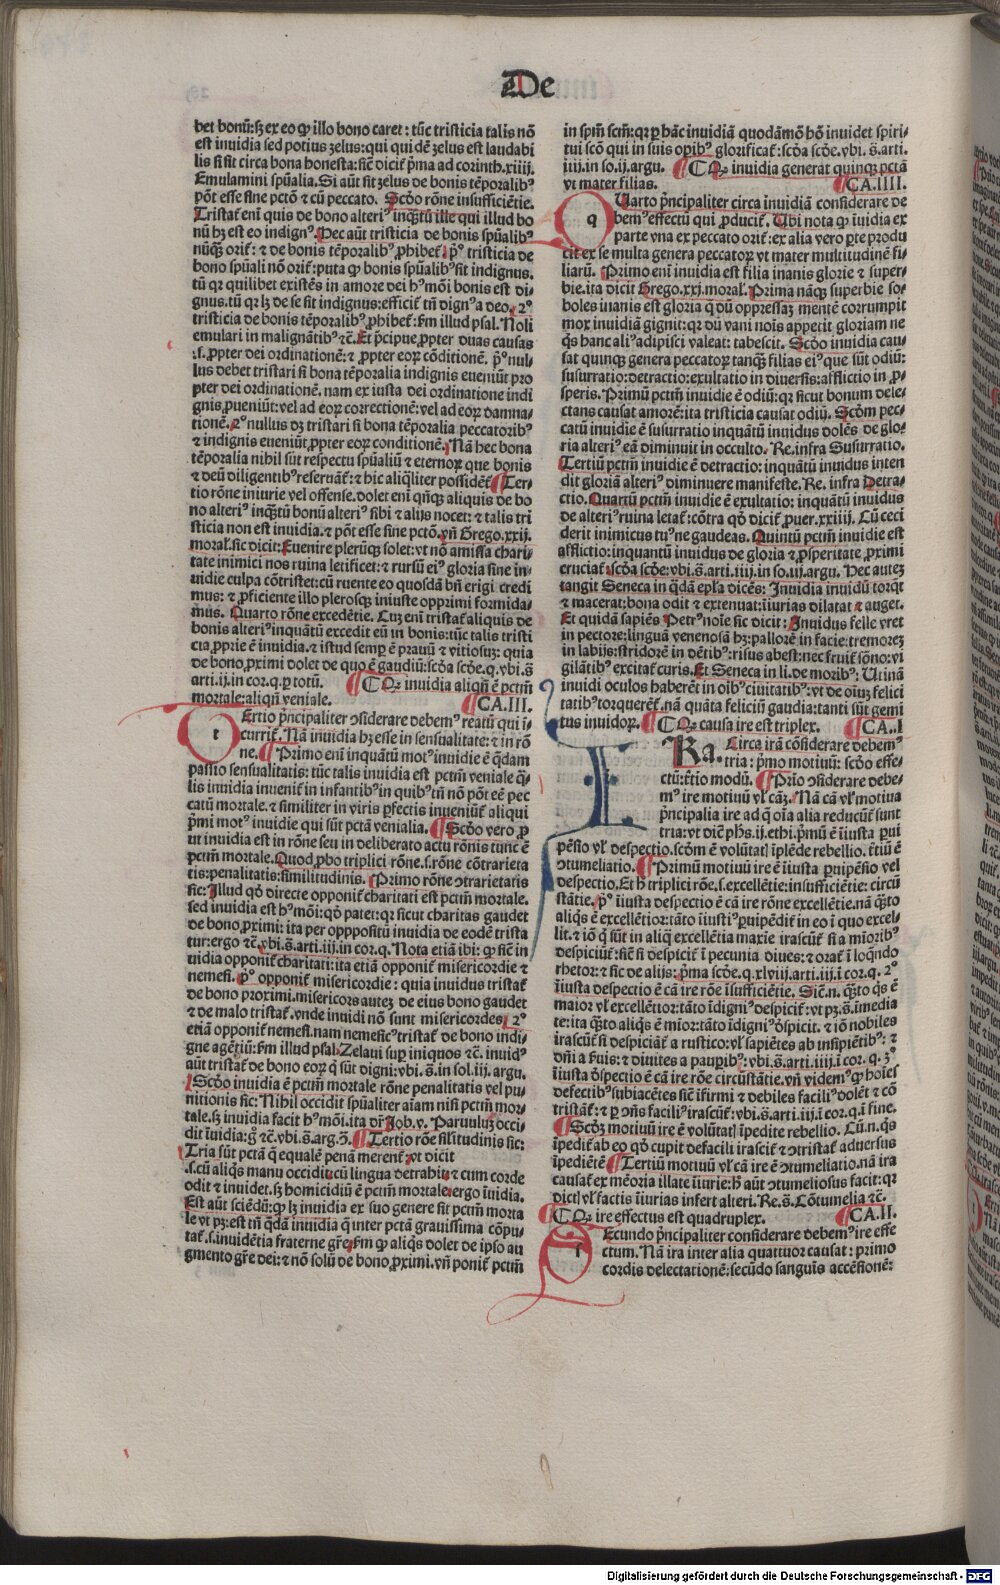 De
bet bonū:sꝫ ex eo ꝙ illo bono caret: tūc tristicia talis nō
est inuidia sed potius zelus: qui quidē zelus est laudabi
lis si sit circa bona honesta:sic̄ dicit̉ p̄ma ad corinth.xiiij.
Emulamini spūalia. Si aūt sit zelus de bonis tēporalibꝰ
pōt esse sine pctō ⁊ cū peccato. Scd̓o rōne insufficiētie.
Tristat̉ eni quis de bono alteriꝰ inqꝫtū ille qui illud bo
nū hꝫ est eo indignꝰ. Hec aūt tristicia de bonis spūalibꝰ
nūqꝫ orit̉: ⁊ de bonis tēporalibꝰ ꝓhibet̉. pꝰ tristicia de
bono spūali nō orit̉:puta ꝙ bonis spūalibꝰ sit indignus.
tū qꝛ quilibet existēs in amore dei hꝰmōi bonis est di-
gnus.tū qꝛ lꝫ de se sit indignus:efficit̉ tn̄ dignꝰ a deo. 2ꝰ
tristicia de bonis tēporalibꝰ ꝓhibet̉: fm illud psal. Noli
emulari in malignātibꝰ ⁊c̄. Et p̄cipue ꝓpter duas causas
.s.ꝓpter dei ordinationē: ⁊ ꝓpter eoꝝ cōditionē. pꝰ nul-
lus debet tristari si bona tēporalia indignis eueniūt pro
pter dei ordinationē. nam ex iusta dei ordinatione indi
gnis ꝓueniūt:vel ad eoꝝ correctionē:vel ad eoꝝ damna-
tionē. 2ꝰ nullus dꝫ tristari si bona tēporalia peccatoribꝰ
⁊ indignis eueniūt ꝓpter eoꝝ conditionē. Nā hec bona
tēporalia nihil sūt respectu spūaliū ⁊ eternoꝝ que bonis
⁊ deū diligentibꝰ reseruāt̉: ⁊ hic aliqͥliter possidēt̉. ¶ Ter-
tio rōne iniurie vel offense.dolet eni qn̄qꝫ aliquis de bo
no alteriꝰ inqꝫtū bonū alteriꝰ sibi ⁊ alijs nocet: ⁊ talis tri
sticia non est inuidia. ⁊ pōt esse sine pctō.vn̄ Grego.xxij.
moral̓.sic dicit: Euenire plerūqꝫ solet:vt nō amissa chari-
tate inimici nos ruina letificet: ⁊ rursū eiꝰ gloria sine in-
uidie culpa cōtristet:cū ruente eo quosdā bn̄ erigi credi
mus: ⁊ ꝓficiente illo plerosqꝫ iniuste opprimi formida-
mus. Quarto rōne excedētie. Cuꝫ eni tristat̉ aliquis de
bonis alteriꝰ inquātū excedit eū in bonis:tūc talis tristi
cia ꝓprie ē inuidia.⁊ istud semꝑ ē prauū ⁊ vitiosuꝫ: quia
de bono ꝓximi dolet de quo ē gaudiū:scd̓a scd̓e.q.vbi.s̄
arti.ij.in cor.q.ꝑ totū. ¶ CQꝛ inuidia aliqn̄ ē pctm̄
mortale:aliqn̄ veniale. ¶CA.III.
t Ertio p̄ncipaliter ꝯsiderare debemꝰ reatū qui ī-
currit̉. Nā inuidia hꝫ esse in sensualitate: ⁊ in rō
ne. ¶ Primo eni inquātū motꝰ inuidie ē qͥdam
passio sensualitatis: tūc talis inuidia est pctm̄ veniale qͣ-
lis inuidia inuenit̉ in infantibꝰ in quibꝰ tn̄ nō pōt eē pec
catū mortale. ⁊ similiter in viris ꝑfectis inueniūt̉ aliqui
p̄mi motꝰ inuidie qui sūt pctā venialia. ¶ Scd̓o vero ꝓ
ut inuidia est in rōne seu in deliberato actu rōnis tunc ē
pctm̄ mortale. Quod ꝓbo triplici rōne.s.rōne cōtrarieta
tis:penalitatis:similitudinis. ¶Primo rōne ꝯtrarietatis
sic: Illud qd̓ directe opponit̉ charitati est pctm̄ mortale.
sed inuidia est hꝰmōi: qd̓ patet: qꝛ sicut charitas gaudet
de bono ꝓximi: ita per opppositū inuidia de eodē trista
tur:ergo ⁊c̄.vbi.s̄.arti.iij.in cor.q. Nota etiā ibi: ꝙ sic̄ in
uidia opponit̉ charitati:ita etiā opponit̉ misericordie ⁊
nemesi. pꝰ opponit̉ misericordie: quia inuidus tristat̉
de bono proximi.misericors auteꝫ de eius bono gaudet
⁊ de malo tristat̉.vnde inuidi nō sunt misericordes. 2ꝰ
etiā opponit̉ nemesi.nam nemeficꝰ tristat̉ de bono indi-
gne agētiū: fm illud psal. Zelaui suꝑ iniquos ⁊c̄. inuidꝰ
aūt tristat̉ de bono eoꝝ qͥ sūt digni:vbi.s̄.in sol.iij.argu.
Scd̓o inuidia ē pctm̄ mortale rōne penalitatis vel pu-
nitionis sic: Nihil occidit spūaliter aīam nisi pctm̄ mor-
tale.sꝫ inuidia facit hꝰmōi.ita dr̄ Job.v. Paruuluꝫ occi-
dit īuidia:gͦ ⁊c̄.vbi.s̄.arg.ꝫ. ¶ Tertio rōne sīlitudinis sic:
Tria sūt pctā qͥ equalē penā merent̉.vt dicit
.s.cū aliqͥs manu occidit:cū lingua detrahit: ⁊ cum corde
odit ⁊ inuidet.sꝫ homicidiū ē pctm̄ mortale:ergo īuidia.
Est aūt sciēdū:ꝙ lꝫ inuidia ex suo genere sit pctm̄ morta
le vt pꝫ:est tn̄ qͥdā inuidia qͥ inter pctā grauissima cōpu-
tat̉.s.inuidētia fraterne gr̄e: fm ꝙ aliqͥs dolet de ipso au
gmento gr̄e dei: ⁊ nō solū de bono ꝓximi.vn̄ ponit̉ pctm̄
in spm̄ scm̄:qꝛ ꝑ hāc inuidiā quodāmō hō inuidet spiri-
tui scō qui in suis opibꝰ glorificat̉: scd̓a scd̓e.vbi.s̄.arti.
iiij.in so.ij.argu. ¶ CQꝛ inuidia generat quinqꝫ pctā
vt mater filias. ¶CA.IIII.
q Uarto p̄ncipaliter circa inuidiā considerare de
bemꝰ effectū qui ꝓducit̉. Ubi nota ꝙ īuidia ex
parte vna ex peccato orit̉: ex alia vero ꝑte produ
cit ex se multa genera peccatoꝝ vt mater multitudinē fi-
liarū. Primo eni inuidia est filia inanis glorie ⁊ super-
bie.ita dicit Grego.xxi.moral̓. Prima nāqꝫ superbie so-
boles inanis est gloria qͥ dū oppressaꝫ mentē corrumpit
mox inuidiā gignit: qꝛ dū vani nois appetit gloriam ne
qͥs hanc aliꝰ adipisci valeat: tabescit. Scd̓o inuidia cau-
sat quinqꝫ genera peccatoꝝ tanqꝫ filias eiꝰ que sūt odiū:
susurratio:detractio:exultatio in diuersis:afflictio in ꝓ-
speris. Primū pctm̄ inuidie ē odiū:qꝛ sicut bonum dele-
ctans causat amorē:ita tristicia causat odiū. Scd̓m pec-
catū inuidie ē susurratio inquātū inuidus dolēs de glo-
ria alteriꝰ eā diminuit in occulto. Re.infra Susurratio.
Tertiū pctm̄ inuidie ē detractio: inquātū inuidus inten
dit gloriā alteriꝰ diminuere manifeste. Re. infra Detra-
ctio. Quartū pctm̄ inuidie ē exultatio: inquātū inuidus
de alteriꝰ ruina letat̉: cōtra qd̓ dicit̉ ꝓuer.xxiiij. Cū ceci
derit inimicus tuꝰ ne gaudeas. Quintū pctm̄ inuidie est
afflictio:inquantū inuidus de gloria ⁊ ꝓsperitate ꝓximi
cruciat̉: scd̓a scd̓e:vbi.s̄.arti.iiij.in so.iij.argu. Hec auteꝫ
tangit Seneca in qͥdā epl̓a dicēs: Inuidia inuidū torqͣt
⁊ macerat:bona odit ⁊ extenuat:īiurias dilatat ⁊ auget.
Et quidā sapiēs Petrꝰ noīe sic dicit: Inuidus felle vret
in pectore:linguā venenosā hꝫ:pallorē in facie:tremoreꝫ
in labijs:stridorē in dētibꝰ:risus abest:nec fruit̉ sōno:vi
gilātibꝰ excitat̉ curis. Et Seneca in li.de moribꝰ: Utinā
inuidi oculos haberēt in oībꝰ ciuitatibꝰ:vt de oīuꝫ felici
tatibꝰ torquerēt̉.nā quāta feliciū gaudia:tanti sūt gemi
tus inuidoꝝ. ¶ CQꝛ causa ire est triplex. ¶CA..I
I Ra. Circa irā cōsiderare debemꝰ
tria: p̄mo motiuū: scd̓o effe-
ctū:t̄tio modū. ¶ Prio ꝯsiderare debe-
mꝰ ire motiuū vl̓ cāꝫ. Nā cā vl̓ motiua
p̄ncipalia ire ad qͥ oīa alia reducūt̉ sunt
tria:vt dic̄ phs̄.ij.ethi.p̄mū ē īiusta ꝑui
pēsio vl̓ despectio.scd̓m ē volūtatꝭ īplēde rebellio. t̄tiū ē
ꝯtumeliatio. ¶ Primū motiuū ire ē īiusta ꝑuipēsio vel
despectio. Et h̓ triplici rōe.s.excellētie:insufficiētie: circū
stātie. pꝰ īiusta despectio ē cā ire rōne excellētie.nā qͣto
aliqͥs ē excellētior:tāto īiustiꝰ ꝑuipēdit̉ in eo ī quo excel-
lit. ⁊ iō qͥ sūt in aliqͣ excellētia maxīe irascūt̉ si a mīoribꝰ
despiciūt̉:sic̄ si despicit̉ ī pecunia diues: ⁊ orat̉ ī loqn̄do
rhetor: ⁊ sic de alijs: p̄ma scd̓e.q.xlviij.arti.iij.ī cor.q. 2ꝰ
īiusta despectio ē cā ire rōe īsufficiētie. Sic̄.n. qͣto qͥs ē
maior vl̓ excellētior:tāto īdigniꝰ despicit̉: vt pꝫ.s̄.īmedia
te:ita qͣto aliqͥs ē mīor:tāto īdigniꝰ ꝺspicit. ⁊ iō nobiles
irascūt̉ si despiciāt̉ a rustico:vl̓ sapiētes ab insipiētibꝰ: ⁊
dn̄i a ẜuis: ⁊ diuites a pauꝑibꝰ:vbi.s̄.arti.iiij.ī cor.q. ꝫꝰ
īiusta ꝺspectio ē cā ire rōe circūstātie.vn̄ videmꝰ ꝙ hoīes
defectibꝰ subiacētes sic̄ īfirmi ⁊ debiles faciliꝰ dolēt ⁊ cō
tristāt̉: ⁊ ꝑ ꝯn̄s faciliꝰ irascūt̉:vbi.s̄.arti.iij.ī cor.q.ī fine.
¶ Scd̓ꝫ motiuū ire ē volūtatꝭ īpedite rebellio. Cū.n.qͥs
īpedit̉ ab eo qd̓ cupit defacili irascit̉ ⁊ ꝯtristat̉ aduersus
īpediētē. ¶ Tertiū motiuū vl̓ cā ire ē ꝯtumeliatio.nā ira
causat̉ ex mēoria illate īiurie:h̓ aūt ꝯtumeliosus facit:qꝛ
dictꝭ vl̓ factis īiurias infert alteri. Re.s̄. Cōtumelia ⁊c̄.
¶ CQꝛ ire effectus est quadruplex. ¶CA.II.
s Ecundo p̄ncipaliter considerare debemꝰ ire effe
ctum. Nā ira inter alia quattuor causat: primo
cordis delectationē: secūdo sanguīs accēsionē:
Digitalisierung gefördert durch die Deutsche Forschungsgemeinschaft - DFG